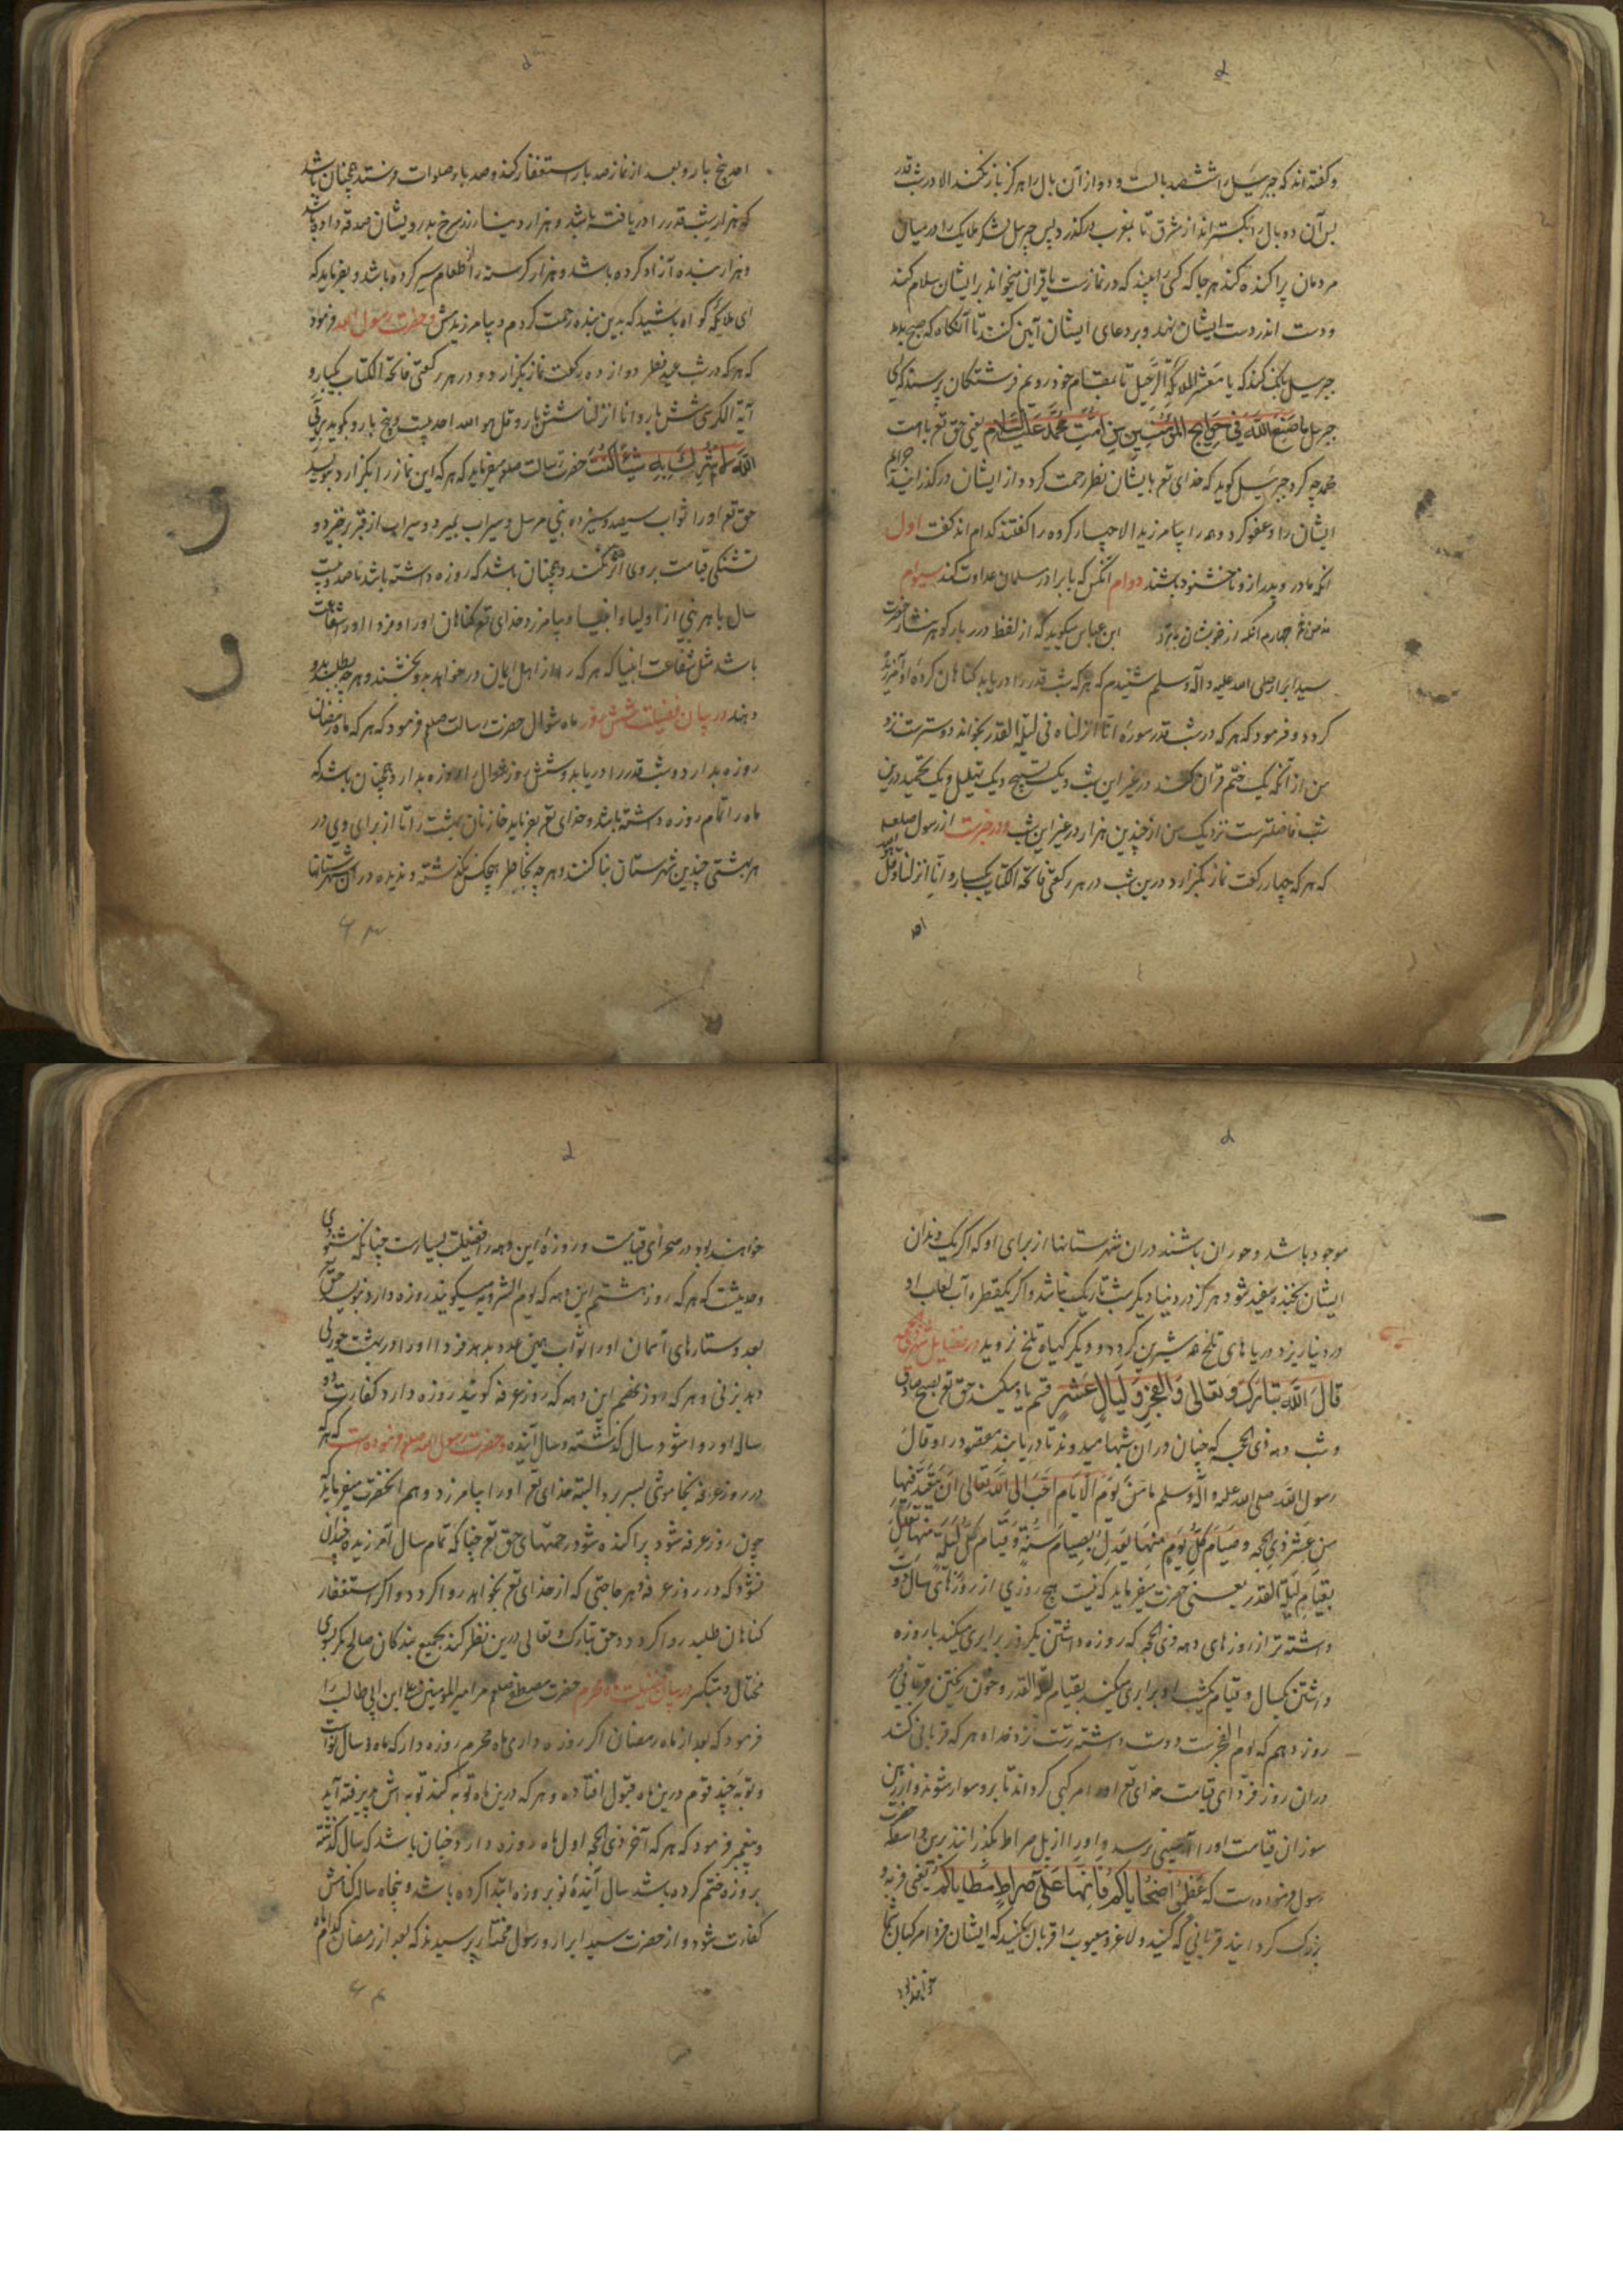 و گفته اند که جبرئیل را ششصد بالست و دو از آن بال را هرگز باز نکند الا در شب قدر
پس آن ده بال را بگستراند از مشرق تا بمغرب درگذرد پس جبرئیل لشکر ملایک را در میان
مردمان پراکنده کند هر جا که کسی را بیند که در نمازست یا قرآن میخواند بر ایشان سلام کند
و دست اندر دست ایشان نهد و بر دعای ایشان آمین کنند تا آنگاه که صبح بدمد
جبرئیل بانک کند که یا معشر الملائکة الرحیل تا بمقام خود رویم فرشتگان پرسند که ای
جبرئیل ما صنع الله فی حوایج المؤمنین من امت محمد علیه السلام یعنی حق تع با امت
محمد چه کرد جبرئیل گوید که خدای تع بایشان نظر رحمت کرد و از ایشان درگذرانید جرایم
ایشان را و عفو کرد و همه را بیامرزید الا چهار گروه را گفتند کدام اند گفت اول
آنکه مادر و پدر ازو ناخشنود باشند دوام آنکس که با برادر مسلمان عداوت کند سیوام
چهارم آنکه از خویشان ببرد ابن عباس میگوید که از لفظ درر بار گوهر نثار حضرت
سید ابرار صلی الله علیه و آله و سلم شنیدم که هر که شب قدر را دریابد گناهان کرده او آمرزیده
گردد و فرمود که هر که در شب قدر سورهٔ انا انزلناه فی لیلة القدر بخواند دوسترست نزد
من از آنکه یک ختم قرآن کند در غیر این شب و یک تسبیح و یک تهلیل و یک تحمید درین
شب فاضلترست نزدیک من از چندین هزار در غیر این شب و در خبرست از رسول صلعم
که هر که چهار رکعت نماز بگزارد درین شب در هر رکعتی فاتحة الکتاب یکبار و انا انزلنا و قل هو الله
احد
احد پنج بار و بعد از نماز صد بار استغفار کند و صد بار صلوات فرستد همچنان باشد
که هزار شب قدر را دریافته باشد و هزار دینار زر سرخ بدرویشان صدقه داده باشد
و هزار بنده آزاد کرده باشد و هزار گرسنه را طعام سیر کرده باشد و بفرماید که
ای ملایکه گواه باشید که بدین بنده رحمت کردم و بیامرزیدمش و حضرت رسول الله فرمود
که هر که در شب عید فطر دوازده رکعت نماز بگزارد و در هر رکعتی فاتحة الکتاب یکبار و
آیة الکرسی شش بار و انا انزلنا شش بار و قل هو الله احد بیست و پنج بار و بگوید
حضرت رسالت صلعم میفرماید که هر که این نماز را بگزارد بنویسد
حق تع او را ثواب سیصد و سیزده نبی مرسل و سیراب بمیرد و سیراب از قبر برخیزد و
تشنگی قیامت بر وی اثر نکند و همچنان باشد که روزه داشته باشد تا صد و بیست
سال با هر نبی از اولیا و انبیا و بیامرزد خدای تع گناهان او را و مزد او را و شفاعت
باشد مثل شفاعت انبیا که هر که را از اهل ایمان درخواهد بدو بخشند و هر چه بطلبد بدو
دهند در بیان فضیلت شش روز ماه شوال حضرت رسالت صلعم فرمود که هر که ماه رمضان
روزه بدارد و شب قدر را دریابد و شش روز شوال را روزه بدارد همچنان باشد که
ماه را تمام روزه داشته باشد و خدای تع بفرماید خازنان بهشت را تا از برای وی در
هر بهشتی چندین شهرستان بنا کنند و هر چه بخاطر هیچکس نگذشته و ندیده در آن شهرستانها
موجود باشد و حوران باشند در آن شهرستانها از برای او که اگر یک دندان
ایشان بخنده سفید شود هرگز در دنیا دیگر شب تاریک نباشد و اگر یکقطره آب لعاب او
در دنیا ریزد دریاهای تلخ همه شیرین گردد و دیگر گیاه تلخ نروید در فضایل عشر ذی الحجه
قال الله تبارک و تعالی والفجر ولیال عشر قسم یاد میکند حق تع بصبح صادق
و شب دهه ذی الحجه که حاجیان در آن شبها میروند تا دریابند مقصود را و قال
رسول الله صلی الله علیه و آله و سلم ما من یوم الایام احب الی الله تعالی ان یتعبد فیها
من عشر ذی الحجه و صیام کل یوم منها یعدل بصیام سنة و قیام کل لیلة منها تعدل
بقیام لیلة القدر یعنی حضرت میفرماید که نیست هیچ روزی از روزهای سال دوست
داشته تر از روزهای دهه ذی الحجه که روزه داشتن یکروز برابری میکند با روزه
داشتن یکسال و قیام یکشب او برابری میکند بقیام لیلة القدر و خون ریختن قربانی در
روز دهم که یوم النحرست دوست داشته ترست نزد خدا و هر که قربانی کند
در آن روز فردای قیامت خدای تع او را مرکبی گرداند تا برو سوار شود و از زمین
سوزان قیامت او را آسیبی نرسد و او را از پل صراط بگذرانند برین واسطه حضرت
رسول فرموده است که عظموا ضحایاکم فانها علی صراط مطایاکم یعنی فربه و
بزرگ گردانید قربانی که کنید و لاغر و معیوب را قربان مکنید که ایشان فردا مرکبان شما
خواهند بود
خواهند بود در صحرای قیامت و روزهٔ این دهه را فضیلت بسیارست چنانکه بشنوی
و حدیثست که هر که روز هشتم این دهه که یوم الترویه میگویند روزه دارد بنویسد حق تع
بعدد ستارهای آسمان او را ثواب و بهمین عدد بدهد مزد او را و در بهشت حوری
دهد بزنی و هر که روز نهم این دهه که روز عرفه گویند روزه دارد کفارت دو
ساله او را شود سال گذشته و سال آینده و حضرت رسول الله صلعم فرموده است که هر که
در روز عرفه بخاموشی بسر برد البته خدای تع او را بیامرزد و هم آنحضرت میفرماید که
چون روز عرفه شود پراکنده شود رحمتهای حق تع چنانکه تمام سال آمرزیده چندان
نشود که در روز عرفه و هر حاجتی که از خدای تع بخواهد روا گردد و اگر استغفار
گناهان طلبد روا گردد و حق تبارک و تعالی درین نظر کند بجمیع بندگان صالح مگر بسوی
مختال و متکبر در بیان فضیلت ماه محرم حضرت مصطفی صلعم مر امیرالمؤمنین علی ابن ابی طالب را
فرمود که بعد از ماه رمضان اگر روزه داری ماه محرم روزه دار که ماه
و توبه چند قوم درین ماه قبول افتاده و هر که درین ماه توبه کند توبه اش پذیرفته آید
و پیغمبر فرمود که هر که آخر ذی الحجه اول ماه روزه دارد چنان باشد که سال گذشته
بروزه ختم کرده باشد سال آیندهٔ نو بروزه ابتدا کرده باشد و پنجاه ساله گناهش
کفارت شود و از حضرت سید ابرار و رسول مختار پرسیدند که بعد از رمضان کدام ماه